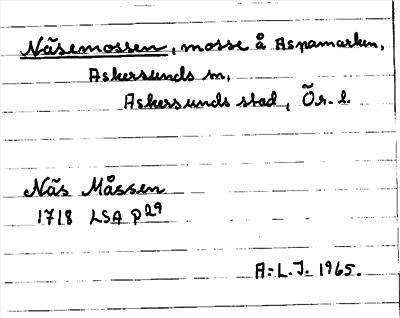 Näsemossen, mosse å Aspamarken,
Askersunds sn,
Askersunds stad, Ör. l.
Näs Måssen
1718 LSA P29
A:L.J. 1965.